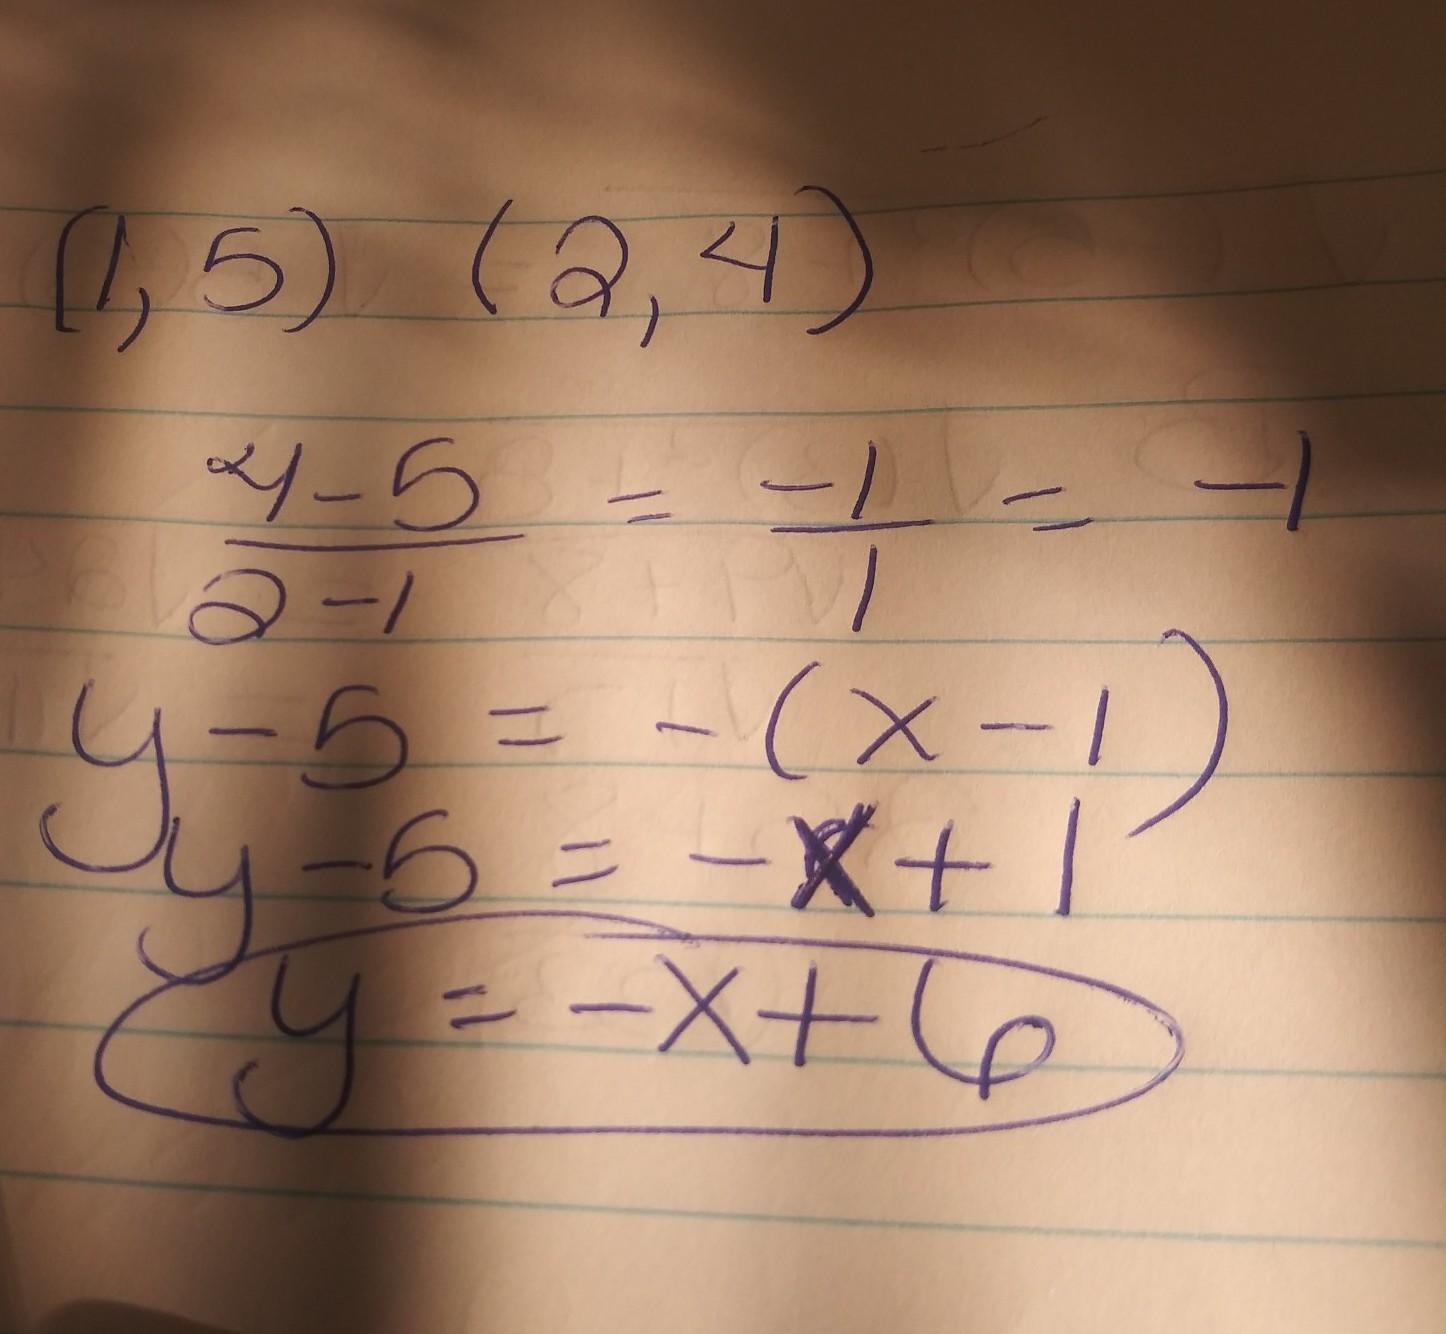 (1,5) (2,4)
4-5 = -1 = -1
2-1 1
y-5 = -(x-1)
y-5 = -x+1
y = -x+6